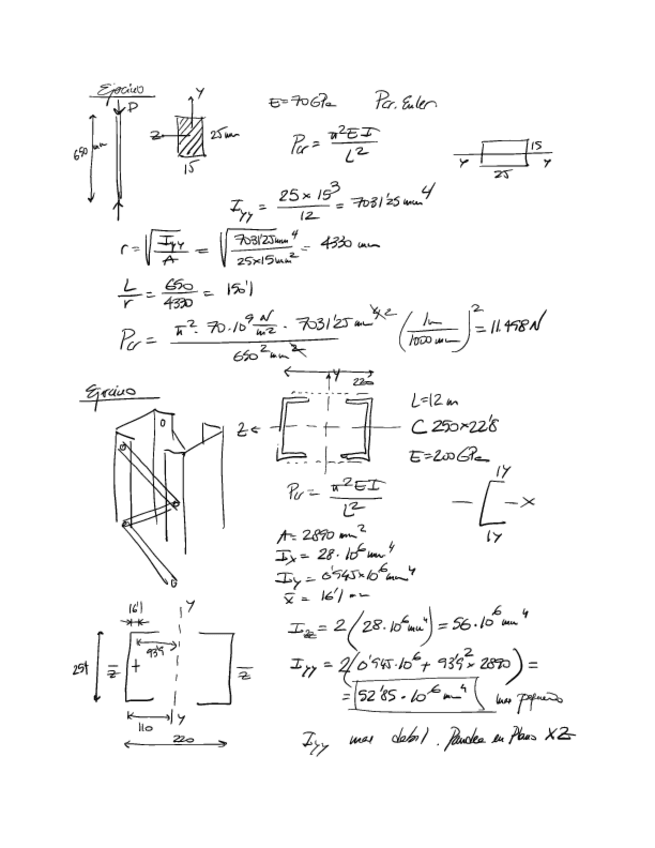 Ejercicio
P
650 mm
Y
Z
25 mm
15
E=70GPa Pcr. Euler
Pcr = π²EI / L²
15
Y Y
25
Iyy = 25 x 15³ / 12 = 7031'25 mm⁴
r = √(Iyy / A) = √(7031'25 mm⁴ / 25x15 mm²) = 4330 mm
L / r = 650 / 4330 = 150'1
Pcr = π² · 70·10⁹ N/m² · 7031'25 mm⁴ ² / 650² mm² (1m / 1000 mm)² = 11.498 N
Ejercicio
Y 220
Z
L=12 m
C 250x22'8
E=200GPa
Pcr = π²EI / L²
1Y
X
1Y
A= 2890 mm²
Ix = 28·10⁶ mm⁴
Iy = 0'945x10⁶ mm⁴
x̄ = 16'1 mm
16'1 Y
93'9
254 Z Z
110 Y
220
Izz = 2(28·10⁶ mm⁴) = 56·10⁶ mm⁴
Iyy = 2(0'945·10⁶ + 93'9² x 2890) =
= 52'85·10⁶ mm⁴ mas pequeño
Iyy mas debil. Pandea en Plano XZ